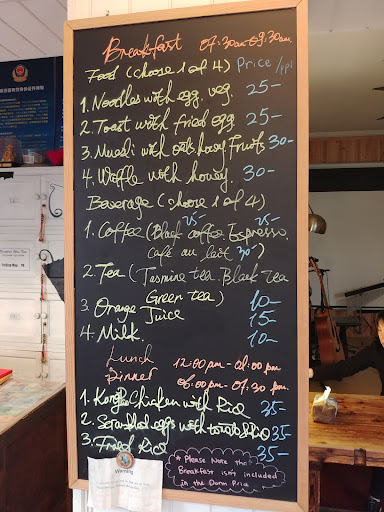 Breakfast 07:30am-09:30am.
Food (choose 1 of 4) Price /ppl
1. Noodles with egg. veg. 25-
2. Toast with fried egg 25-
3. Muesli with oats honey Fruits 30-
4. Waffle with honey. 30-
Beverage (choose 1 of 4)
25- 25-
1. Coffee (Black coffee. Espresso.
Café au lait 30-)
2. Tea (Jasmine tea. Black tea
Green tea) 10-
3. Orange Juice 15-
4. Milk 10-
Lunch 12:00 pm - 02:00 pm
Dinner 06:00 pm - 07:30 pm.
1. Chicken with Rice 35-
2. Scrambled eggs with 35-
3. Fried Rice 35-
* Please Note the
Breakfast isn't included
in the Dorm Price
Warning